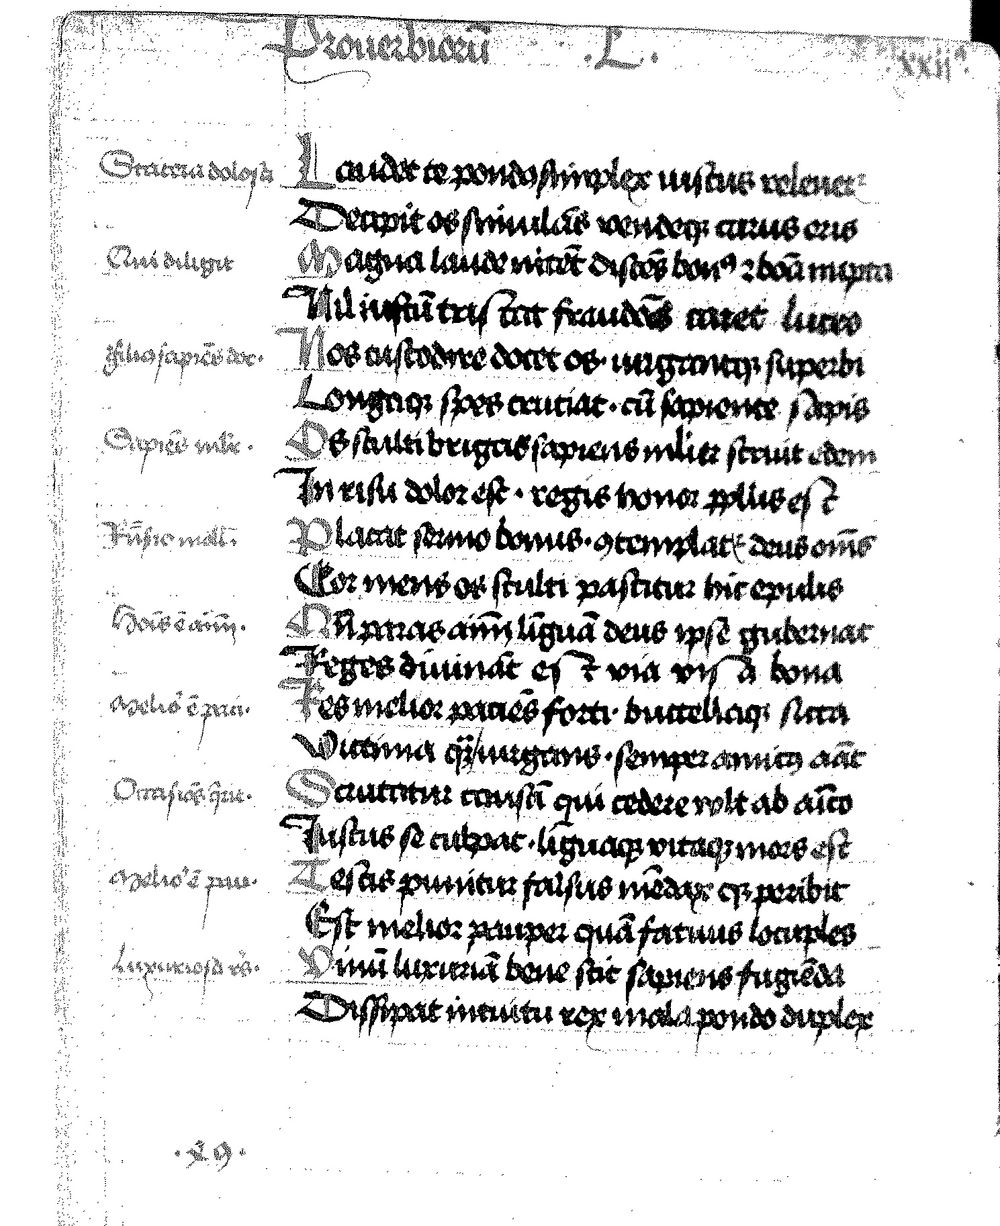 Prouerbiorū .L. xxii
Statera dolosa
Laudet te pondo simplex iustus releuet
Decipit os simulās vendeq; carus eris
Qui diligit
Magna laude nitet discēs bonꝰ ⁊ boā nupta
Nil iustū tristat fraudās caret luceo
filiꝰ sapiēs doc·
Nos custodire docet os· iurgantq; superbi
Longaq; spes cruciat· cū sapiente sapis
Sapiēs ml̄ie·
Os stulti brigas sapiens ml̄ier struit edem
In risu dolor est· regis honor ꝓpl̄lus est
Rn̄sio moll·
Placat sermo bonus· ꝯtemplat deus om̄s
Cor mens os stulti pascitur hic epulis
Hoīs ē aīm·
Nr̄ paras aīm līguā deus ipse gubernat
Reges diuināt est via visa bona
Melioꝰ ē paci·
Res melior paciēs forti· buccellaq; sicca
Victima iurgans· semper amicꝰ amāt
Occasiōs q̄rit·
Scrutatur causā qui cedere volt ab amīco
Iustus se culpat· līguaq; vitaq; mors est
Melioꝰ ē pau·
Testis punitur falsus mēdax q; peribit
Est melior pauper quā fatuus locuples
Luxuriosa rēs·
Vinū luxuriā bene scit sapiens fugiēda
Dissipat intuitu rex mala pondo duplex
·29·